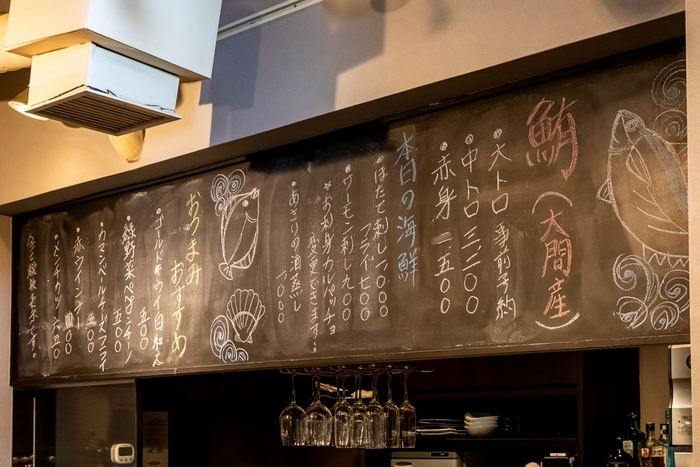 鮪(大間産)
・大トロ 事前予約
・中トロ 三、二〇〇
・赤身 二、五〇〇
本日の海鮮
・ほたて刺し 一、〇〇〇
フライ 七〇〇
・サーモン刺し 九〇〇
※お刺身カルパッチョ
変更できます!
・あさりの酒蒸し
一、〇〇〇
おつまみ
おすすめ
・ゴールドキウイ白和え
五〇〇
・緑野菜ペペロンチーノ
五〇〇
・カマンベールチーズフライ